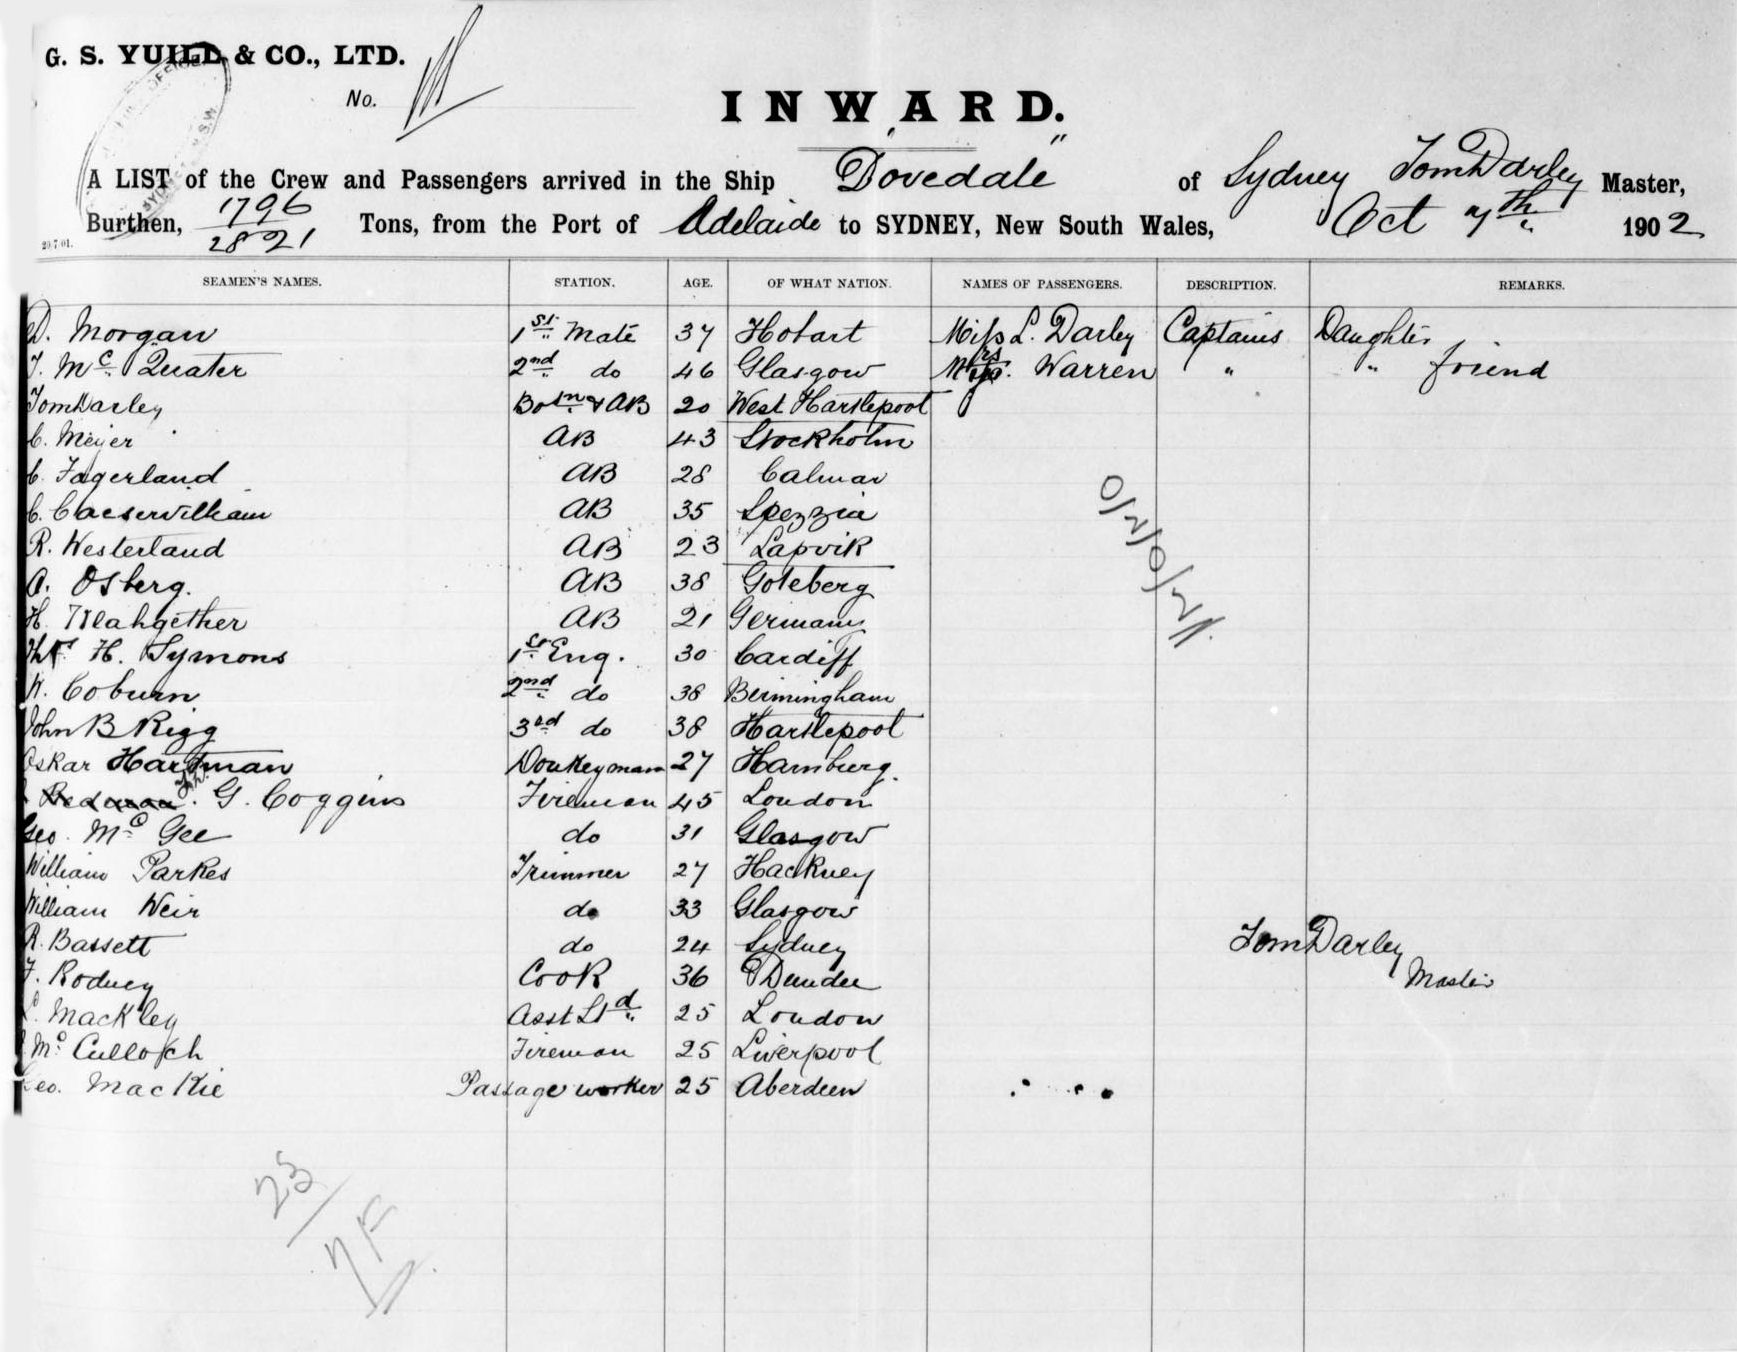 G. S. YUILL & CO., LTD.
No.
INWARD.
A LIST of the Crew and Passengers arrived in the Ship "Dovedale" of Sydney Tom Darley Master,
Burthen, 1796 2821 Tons, from the Port of Adelaide to SYDNEY, New South Wales, Oct 7th 1902
20.7 01.
SEAMEN'S NAMES. STATION. AGE. OF WHAT NATION. NAMES OF PASSENGERS. DESCRIPTION. REMARKS.
D. Morgan 1st Mate 37 Hobart Miss L. Darley Captains Daughter
Mc Quater 2nd do 46 Glasgow Mrs. Warren " " friend
Tom Darley Bosn & AB 20 West Hartlepool
C. Meijer AB 43 Stockholm
C. Fagerland AB 28 Calmar
C. AB 35 Spezzia
R. Westerland AB 23 Lapvik
A. Osberg. AB 38 Goteberg
H. AB 21 Germany
H. Symons 1st Eng. 30 Cardiff
W. Coburn 2nd do 38 Birmingham
John B Rigg 3rd do 38 Hartlepool
Oskar Hartman Donkeyman 27 Hamburg.
G. Coggins Fireman 45 London
Geo. Mc Gee do 31 Glasgow
William Parkes Trimmer 27 Hackney
William Weir do 33 Glasgow
R. Bassett do 24 Sydney
F. Rodney Cook 36 Dundee
Mackley Asst Std 25 London
Mc Culloch Fireman 25 Liverpool
Geo. MacKie Passage worker 25 Aberdeen
Tom Darley
Master
0/2/0/21.
23
7F